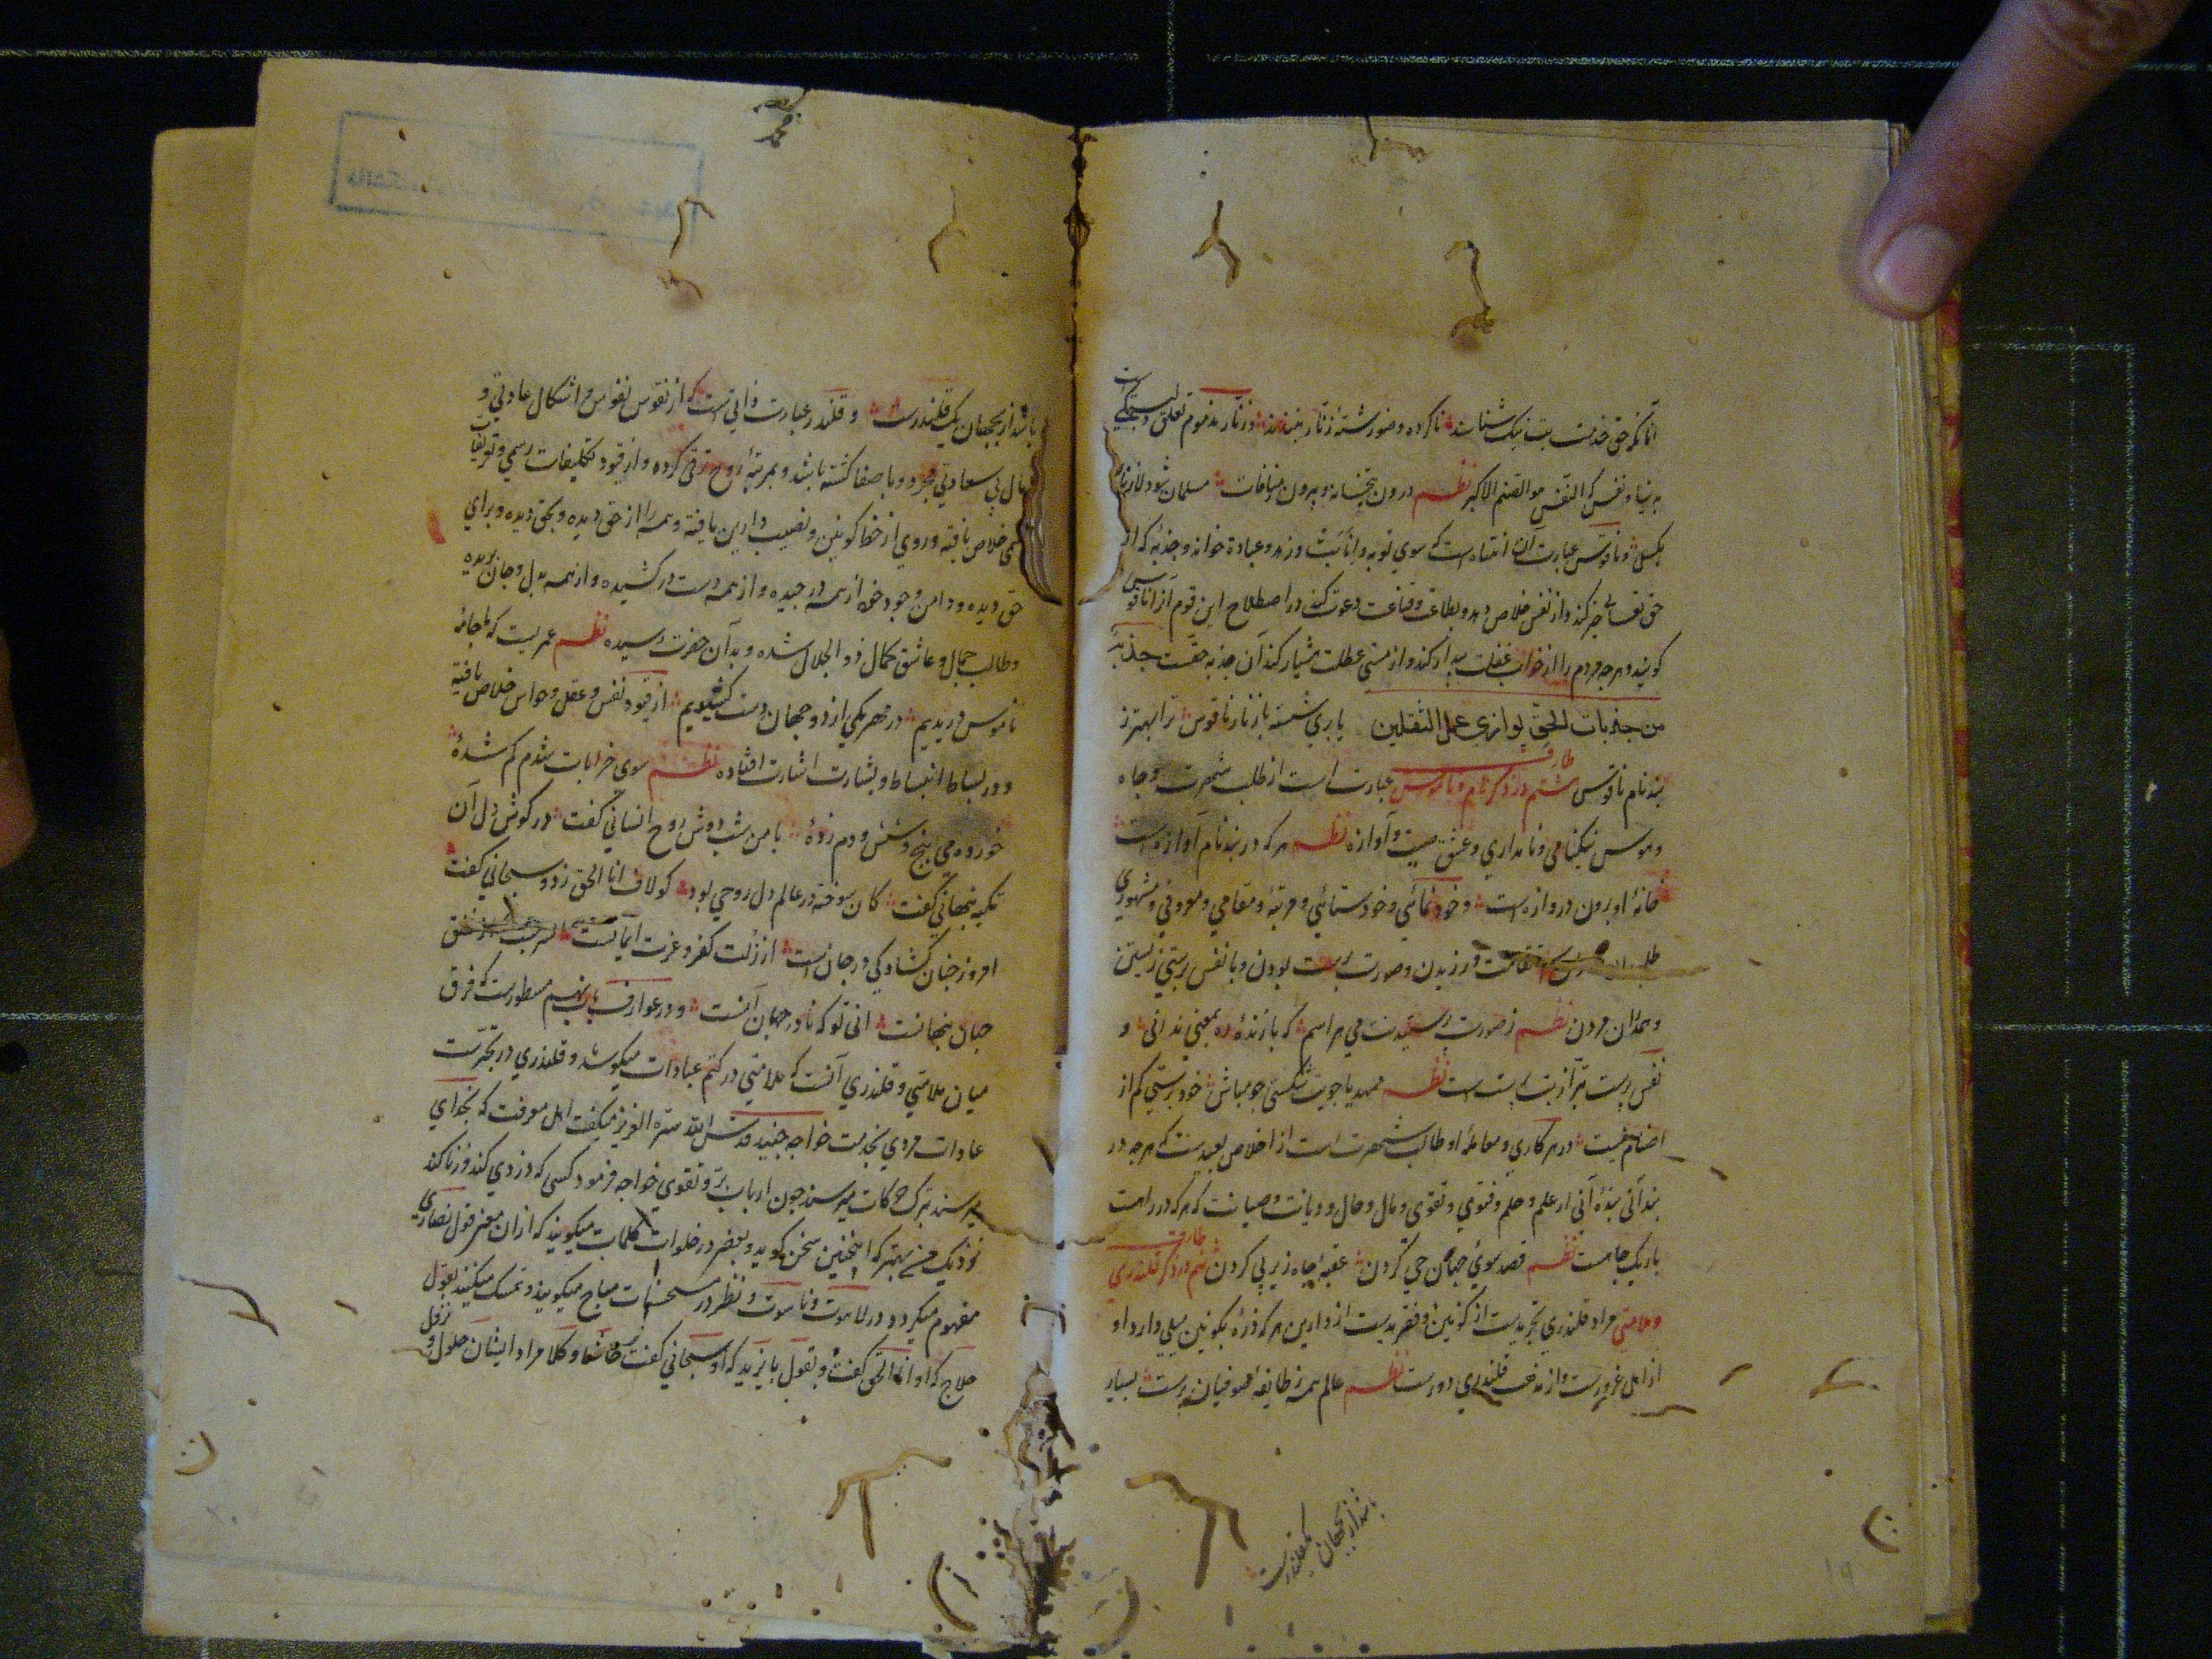 آنانکه حق خدمت بت نیک شناسند ناکرده وضو رشته زنار نبندند و زنار مذموم تعلق و بستگی است
به دنیا و نفس که النفس هو الصنم الاکبر نظم درون بتخانه و بیرون مناجات مسلمان شو و لا زنار
بکسل و ناقوس عبارت از انتباه است که سوی توبه و انابت و زهد و عبادة خواند و جذبه که از
حق تعالی خبر کند و از نفس خلاص دهد و بطاعت و قناعت دعوت کند در اصطلاح این قوم آنرا ناقوس
کویند و هرچه مردم را از خواب غفلت بیدار کند و از مستی عطلت هشیار کند آن جذبه حقست جذبة
من جذبات الحق توازی عمل الثقلین یا بری شسته باز زنار ناقوس ترا بهتر ز
بند نام ناقوس ششم در ذکر نام و ناموس عبارت است از طلب شهرت و جاه
و هوس نیکنامی و نامداری و عشق صیت و آوازه نظم هر که در بند نام و آوازه است
خانۀ او برون دروازه است و خود نمائی و خود ستائی و مرتبه و مقامی و معروفی و مشهوری
طلب استقامت ورزیدن و صورت پرست بودن و با نفس پرستی زیستن
و بدان مردن نظم ز صورت پرستیدنت می هراسم که تا زندۀ ره بمعنی ندانی و
نفس پرست بتر از بت پرست است نظم همه یا جویت شکستی جو مباش خود پرستی کم از
اصنام نیست در هر کاری و معامله او طالب شهرت است از اخلاص بعیدست که هرچه در
بند آنی بندۀ آنی از علم و حلم و فتوی و تقوی و مال و حال و دیانت و صیانت که هر که در راهت
باریک جاهست نظم قصد سوی جهان حی کردن عقبۀ جاه زیر پی کردن هفتم در ذکر قلندری
و ملامتی مراد قلندری تجریدست از کونین و تفریدست از دارین هر که ذرۀ بکونین میلی دارد او
از اهل غرورست و از مذهب قلندری دورست نظم عالم همه ز طایفۀ صوفیان پرست بسیار
باشد از بجهان یک قلندرست
باشد از بجهان یک قلندرست و قلندر عبارت ذاتی است که از نقوش نفوس و اشکال عادتی و
آمال بی سعادتی مجرد و با صفا کشته باشد و بمرتبۀ روح ترقی کرده و از قیود تکلیفات رسمی و تعریفات
خلاص یافته و روی از خط کونین و نصیب دارین یافته و همه را از حق دیده و بحق دیده و برای
حق دیده و دامن وجود خود از همه در جیده و از همه دست در کشیده و از همه بدل و جان بریده
و طالب جمال و عاشق کمال ذو الجلال شده و بدان حضرت رسیده نظم عمریست که ما جامۀ
ناموس دریدیم در مهر یکی از دو جهان دست کشیدیم از قیود نفس و عقل و حواس خلاص یافته
و در بساط انبساط و بشارت اشارت افتاده نظم سوی خرابات شدم کم شدۀ
خورده می پنج و شش و دم زدۀ با من شب دوش روح انسانی کفت در کوش دل آن
نکته پنهانی کفت کان سوخته در عالم دل روحی بود کو لاف انا الحق زد و سبحانی کفت
امروز جنان کشادکی در جان است از زلت کفر و عزت ایمانست
جهان پنهانست آنی تو که نا در جهان آنست و در عوارف باب نهم مسطورست که فرق
میان ملامتی و قلندری آنست که ملامتی در کتم عبادات میکوشد و قلندری در تخریب
عادات مردی بخدمت خواجه جنید قدس الله سره العزیز میکفت اهل معرفت که بخدای
میرسند بترک حرکات میرسند جون ارباب بر و تقوی خواجه فرمود کسی که دزدی کند و زنا کند
نزدیک من بهتر که اینجنین سخن کوید و بعضی در خلوات کلمات میکویند که از ان معنی قول نصاری
مفهوم میکردد در لاهوت و ناسوت و نظر در مستحسنات مباح میکویند و تمسک میکنند بقول
حلاج که او انا الحق کفت و بقول بایزید که او سبحانی کفت حاشا و کلا مراد ایشان حلول و نزول